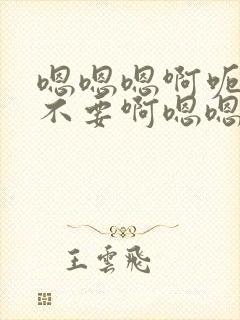 嗯嗯嗯啊呃
不要啊嗯嗯
王雲飛